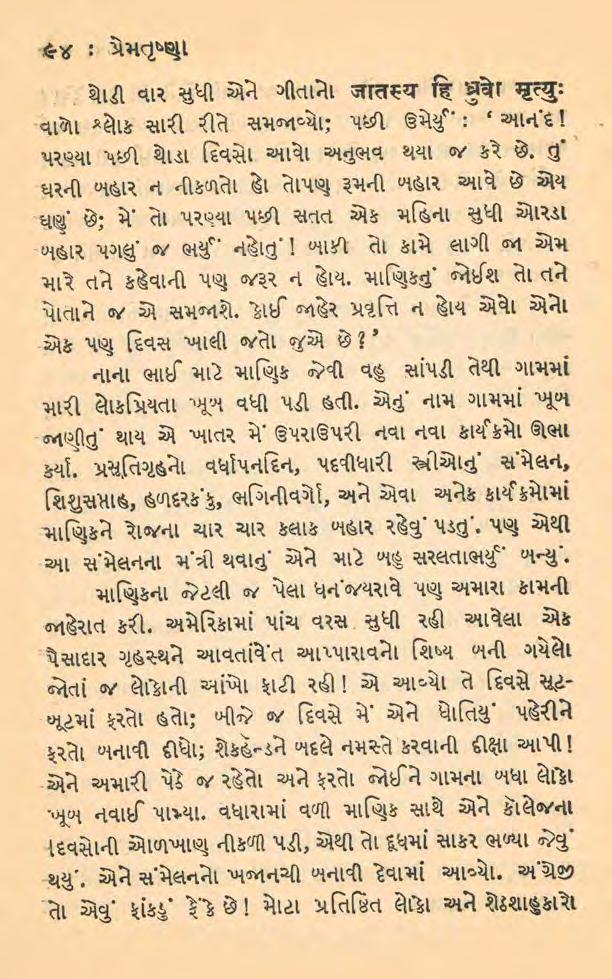 ૯૪ : પ્રેમતૃષ્ણા
થોડી વાર સુધી એને ગીતાનો जातस्य हि ध्रुवो मृत्युः
વાળો શ્લોક સારી રીતે સમજાવ્યો; પછી ઉમેર્યું : ‘ આનંદ !
પરણ્યા પછી થોડા દિવસો આવો અનુભવ થયા જ કરે છે. તું
ઘરની બહાર ન નીકળતો હો તોપણ રૂમની બહાર આવે છે એય
ઘણું છે; મેં તો પરણ્યા પછી સતત એક મહિના સુધી ઓરડા
બહાર પગલું જ ભર્યું નહોતું ! બાકી તો કામે લાગી જા એમ
મારે તને કહેવાની પણ જરૂર ન હોય. માણિકનું જોઈશ તો તને
પોતાને જ એ સમજાશે. કોઈ જાહેર પ્રવૃત્તિ ન હોય એવો એનો
એક પણ દિવસ ખાલી જતો જુએ છે ? ’
નાના ભાઈ માટે માણિક જેવી વહુ સાંપડી તેથી ગામમાં
મારી લોકપ્રિયતા ખૂબ વધી પડી હતી. એનું નામ ગામમાં ખૂબ
જાણીતું થાય એ ખાતર મેં ઉપરાઉપરી નવા નવા કાર્યક્રમો ઊભા
કર્યા. પ્રસૂતિગૃહનો વર્ધાપનદિન, પદવીધારી સ્ત્રીઓનું સંમેલન,
શિશુસપ્તાહ, હળદરકંકુ, ભગિનીવર્ગો, અને એવા અનેક કાર્યક્રમોમાં
માણિકને રોજના ચાર ચાર કલાક બહાર રહેવું પડતું. પણ એથી
આ સંમેલનના મંત્રી થવાનું એને માટે બહુ સરલતાભર્યું બન્યું.
માણિકના જેટલી જ પેલા ધનંજયરાવે પણ અમારા કામની
જાહેરાત કરી. અમેરિકામાં પાંચ વરસ સુધી રહી આવેલા એક
પૈસાદાર ગૃહસ્થને આવતાંવેંત આપ્પારાવનો શિષ્ય બની ગયેલો
જોતાં જ લોકોની આંખો ફાટી રહી ! એ આવ્યો તે દિવસે સૂટ-
બૂટમાં ફરતો હતો; બીજે જ દિવસે મેં એને ધોતિયું પહેરીને
ફરતો બનાવી દીધો; શેકહેન્ડને બદલે નમસ્તે કરવાની દીક્ષા આપી !
એને અમારી પેઠે જ રહેતો અને ફરતો જોઈને ગામના બધા લોકો
ખૂબ નવાઈ પામ્યા. વધારામાં વળી માણિક સાથે એને કૉલેજના
દિવસોની ઓળખાણ નીકળી પડી, એથી તો દૂધમાં સાકર ભળ્યા જેવું
થયું. એને સંમેલનનો ખજાનચી બનાવી દેવામાં આવ્યો. અંગ્રેજી
તો એવું ફાંકડું ફેંકે છે ! મોટા પ્રતિષ્ઠિત લોકો અને શેઠશાહુકારો